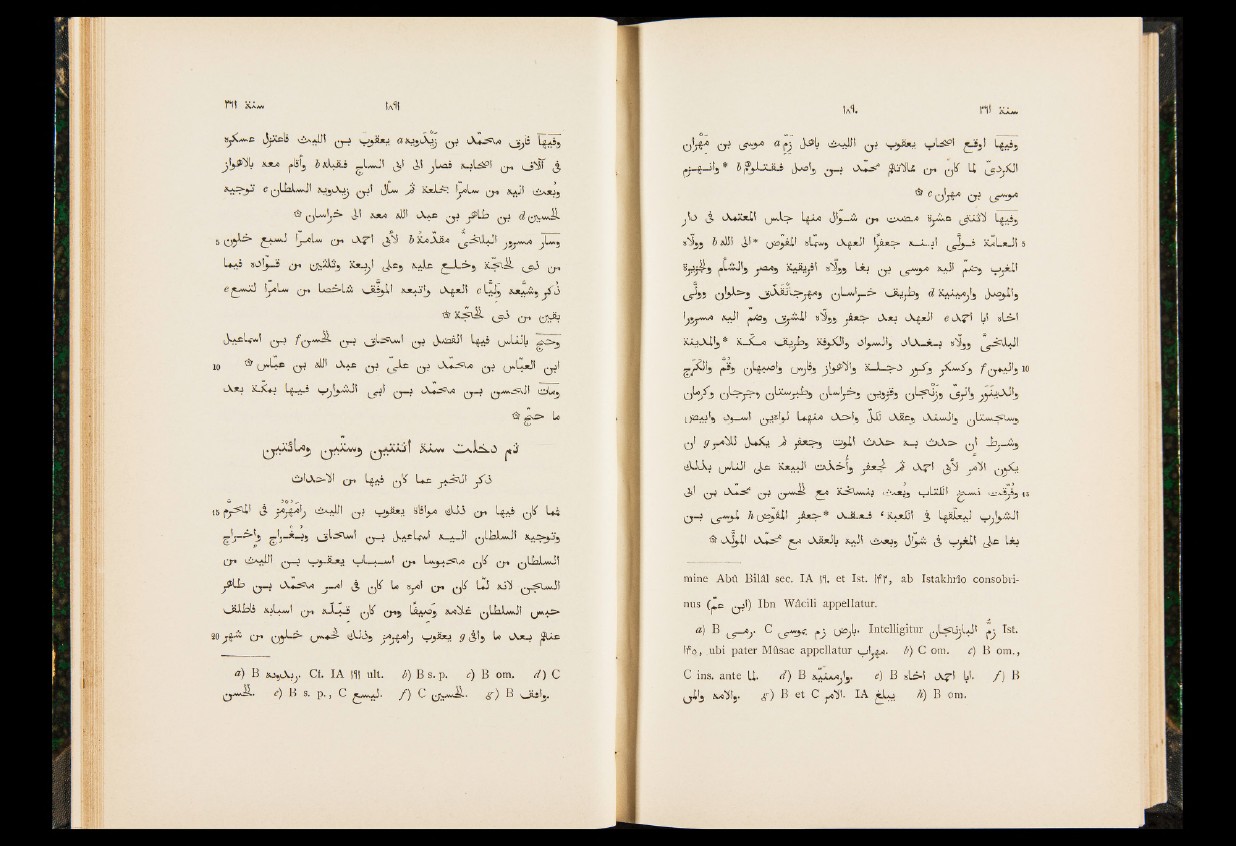 سنة ٢٦١ ١٨٩٠
وفيها اوقع اصحاب يعقوب بن الليث باهل زمّ a موسى بن مهران
الكردىّ لما كان من ممالاتهم محمّد بن واصل فقتلوهم b *وانهزم
موسى بن مهران c ۞
وفيها لاثنتى عشرة مضت من شوّال منها جلس المعتمد فى دار
5 العامّة فولّى ابنه جعفرا العهد وسمّاه المفوّض *الى الله b وولّاه
المغرب وضمّ اليه موسى بن بغا وولّاه افريقية ومصر والشأم والجزيرة
والموصل وارمينية d وطريق خراسان ومهرجانقذق وحلوان وولّى
اخاه ابا احمد e العهد بعد جعفر وولّاه المشرق وضمّ اليه مسرورا
البلخىّ وولّاه بغداد والسواد والكوفة وطريق مكّة *والمدينة
10 واليمن f وكسكر وكور دجلة والاهواز وفارس واصبهان وقمّ والكرج
والدينور والرىّ وزنجان وقزوين وخراسان وطبرستان وجرجان وكرمان
وسجستان والسند وعقد لكلّ واحد منهما لوائين اسود وابيض
وشرط ان حدث به حدث الموت وجعفر لم يكمل للامر g ان
يكون الامر لأبى احمد ثم لجعفر وأخذت البيعة على الناس بذلك
15 وفرّقت نسخ الكتاب وبعث بنسخة مع الحسن بن محمّد بن ابى
الشوارب ليعلّقها فى الكعبة، فعقد *جعفر المفوّض h لموسى بن
بغا على المغرب فى شوّال وبعث اليه بالعقد مع محمّد المولّد ۞
mine Abû Bilâl sec. IA ١٩. et Ist. ١٤٢, ab Istakhrîo consobri-
nus (ابن عم) Ibn Wâcili appellatur.
a) B رمـى. C بارض زم بموسى. Intelligitur زمّ البازنجان Ist.
١٤٥, ubi pater Mûsae appellatur مهراب. b) C om. c) B om.,
C ins. ante لما. d) B وارمنيّة. e) B ابا احمد اخاه. f) B
والامة والمى. g) B et C الامر. IA يبلغ h) B om.
١٨٩١ سنة ٢٦١
وفيها فارق محمّد بن زيدويه a يعقوب بن الليث فاعتزل عسكره
فى آلاف من اصحابه فصار الى ابى الساج فقبله b وأقام معه بالاهواز
وبعث اليه من سامرا بخلعة ثم سأل ابن زيدويه السلطان c توجيه
الحسين d بن طاهر بن عبد الله معه الى خراسان ۞
5 وسار مسرور البلخىّ مقدّمة b لأبى احمد من سامرا لسبع خلون
من ذى الحجّة وخلع عليه وعلى اربعة وثلثين من قوّاده فيما
ذكر وشيّعه وليّا c العهد واتبعه الموفّق شاخصا من سامرا لتسع e
بقين من ذى الحجّة ۞
وحجّ بالناس فيها الفضل بن اسحاق بن الحسن f بن اسماعيل
10 ابن العبّاس بن محمّد بن علىّ بن عبد الله بن عبّاس ۞
ومات الحسن بن محمّد بن ابى الشوارب فيها بمكّة بعد
ما حجّ ۞
ثم دخلت سنة اثنتين وستّين ومائتين
ذكر الخبر عما كان فيها من الاحداث
15 فما كان فيها من ذلك موافاة يعقوب بن الليث رامهرمز فى المحرّم
وتوجيه السلطان اليه اسماعيل بن اسحاق وبغراج واخراج
السلطان من كان محبوسا من اسباب يعقوب بن الليث من
السجن لانه لمّا كان من امره ما كان فى امر محمّد بن طاهر
حبس السلطان غلامه وصيفا ومن كان قبله من اسبابه فاطلق
20 عنهم بعد ما وافى g يعقوب رامهرمز وذلك لخمس خلون من شهر
a) B زيدويه. Cf. IA ١٩١ ult. b) B s. p. c) B om. d) C
الحسن. e) B s. p., C ليسع. f) C الحسين. g) B وافق.